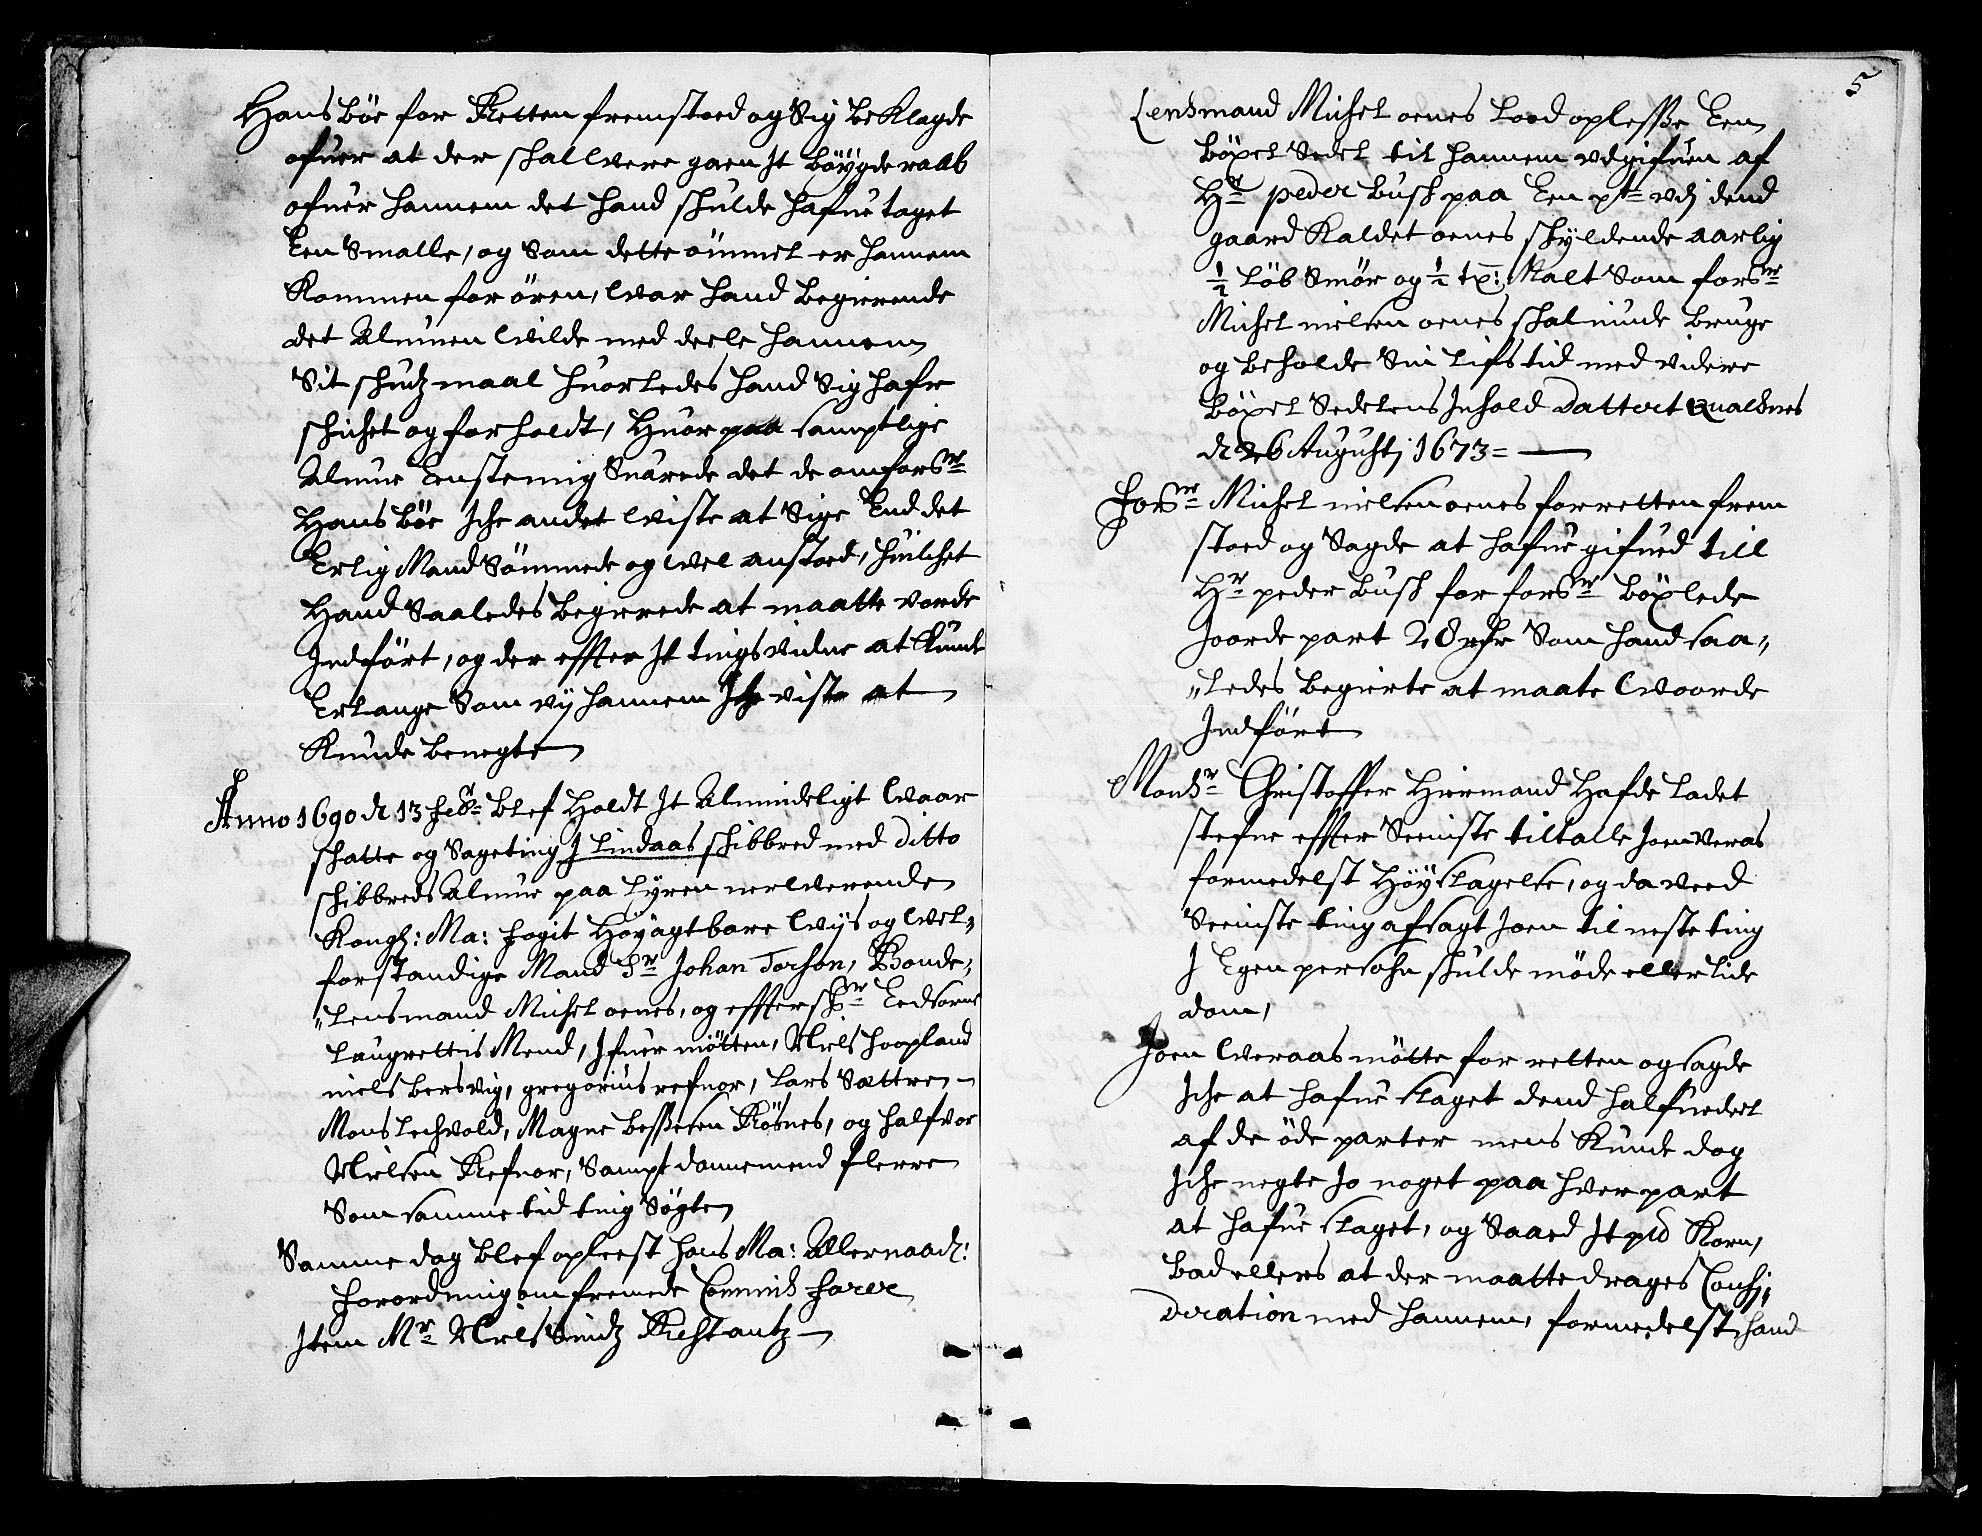 Hans Böe for Retten fremstoed og Sig beklagde
ofuer at der schal were gaen It böÿgderaab
ofuer hannem det hand schulde hafue taget
Een Smalle, og Som dette ömmel er hannem
kommen for ören, war hand begierende
det Almuen wilde med deele hannem
Sit schudz maal huorledes hand Sig hafr
schichet og forholdt, Huor paa samptlige
Almue Eenstemig Suarede det de om forsne
Hans Böe Iche andet wiste at Sige End det
Erlig Mand Sömmede og wel anstoed, huilchet
Hand Saaledes begierede at maatte vorde
Indfört, og der effter It tingsvidne at kunde
Erlange Som vij hannem Iche viste at
kunde benegte
Anno 1690 d 13 febr: blef Holdt It Almindeligt waar
schatte og Sageting J Lindaas schibbred med ditto
schibbreds Almue paa Lÿren nerwerende
Kongl: Ma: fogit Höyagtbare wijs og wel„
forstandige Mand Sr Johan Torson, Bonde„
„Lensmand Michel oenes, og effterschr: Eedsorne
Laugrettis Mend, Ifuer mötten, Niels hoopland
niels bersvig, gregorius refnor, Lars Sættre
Mons Lechvold, Magne beßesen Rösnes, og halfvor
Nielsen Refnor, Sampt dannemend flerre
Som samme tid ting Sögte
Samme dag blef oplest hans Ma: Allernaad:
forordning om fremede Commis farer
Item Mr Niels Smidz Restantz
5
Lensmand Michel oenes Lood opleße Een
böxel Sedel til hannem vdgifuen af
Hr peder busch paa Een pt vdj dend
gaard Kaldet oenes schÿldende aarlig
½ Löb Smör og ½ tx: Malt Som forsne
Michel nielsen oenes schal niude bruge
og beholde Sin lifs tid med videre
böxel Sedelens Inhold dattert Qualsnes
d 26 Augusti 1673 =
Forsne Michel nielsen oenes for retten frem
stoed og Sagde at hafue gifued till
Hr peder busch for forsne böxlede
Joorde part 28 rdr Som hand saa„
„ledes begierte at maate woorde
Indfört
Monsr Christoffer Hiermand Hafde ladet
stefne effter Seeniste tiltalle Joen veras
formedelst Höÿ slagelse, og da veed
Seeniste ting afsagt Joen til neste ting
J Egen persohn schulde möde eller lide
dom,
Joen weraas mötte for retten og sagde
Iche at hafue slaget dend halfuedeel
af de öde parter mens kunde dog
Iche negte Jo noget paa hver part
at hafue slaget, og Saaed It pd Korn,
bad ellers at der maatte drages Consi„
deration med hannem, formedelst hand